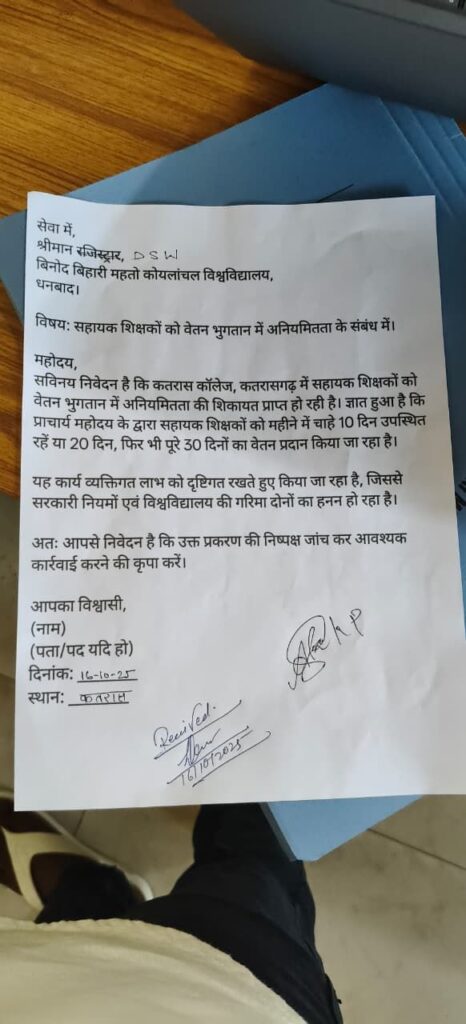 सेवा में,
श्रीमान रजिस्ट्रार, DSW
बिनोद बिहारी महतो कोयलांचल विश्वविद्यालय,
धनबाद।
विषय: सहायक शिक्षकों को वेतन भुगतान में अनियमितता के संबंध में।
महोदय,
सविनय निवेदन है कि कतरास कॉलेज, कतरासगढ़ में सहायक शिक्षकों को
वेतन भुगतान में अनियमितता की शिकायत प्राप्त हो रही है। ज्ञात हुआ है कि
प्राचार्य महोदय के द्वारा सहायक शिक्षकों को महीने में चाहे 10 दिन उपस्थित
रहें या 20 दिन, फिर भी पूरे 30 दिनों का वेतन प्रदान किया जा रहा है।
यह कार्य व्यक्तिगत लाभ को दृष्टिगत रखते हुए किया जा रहा है, जिससे
सरकारी नियमों एवं विश्वविद्यालय की गरिमा दोनों का हनन हो रहा है।
अतः आपसे निवेदन है कि उक्त प्रकरण की निष्पक्ष जांच कर आवश्यक
कार्रवाई करने की कृपा करें।
आपका विश्वासी,
(नाम)
(पता/पद यदि हो)
दिनांक: 16-10-25
स्थान: कतरास
Received.
16/10/2025